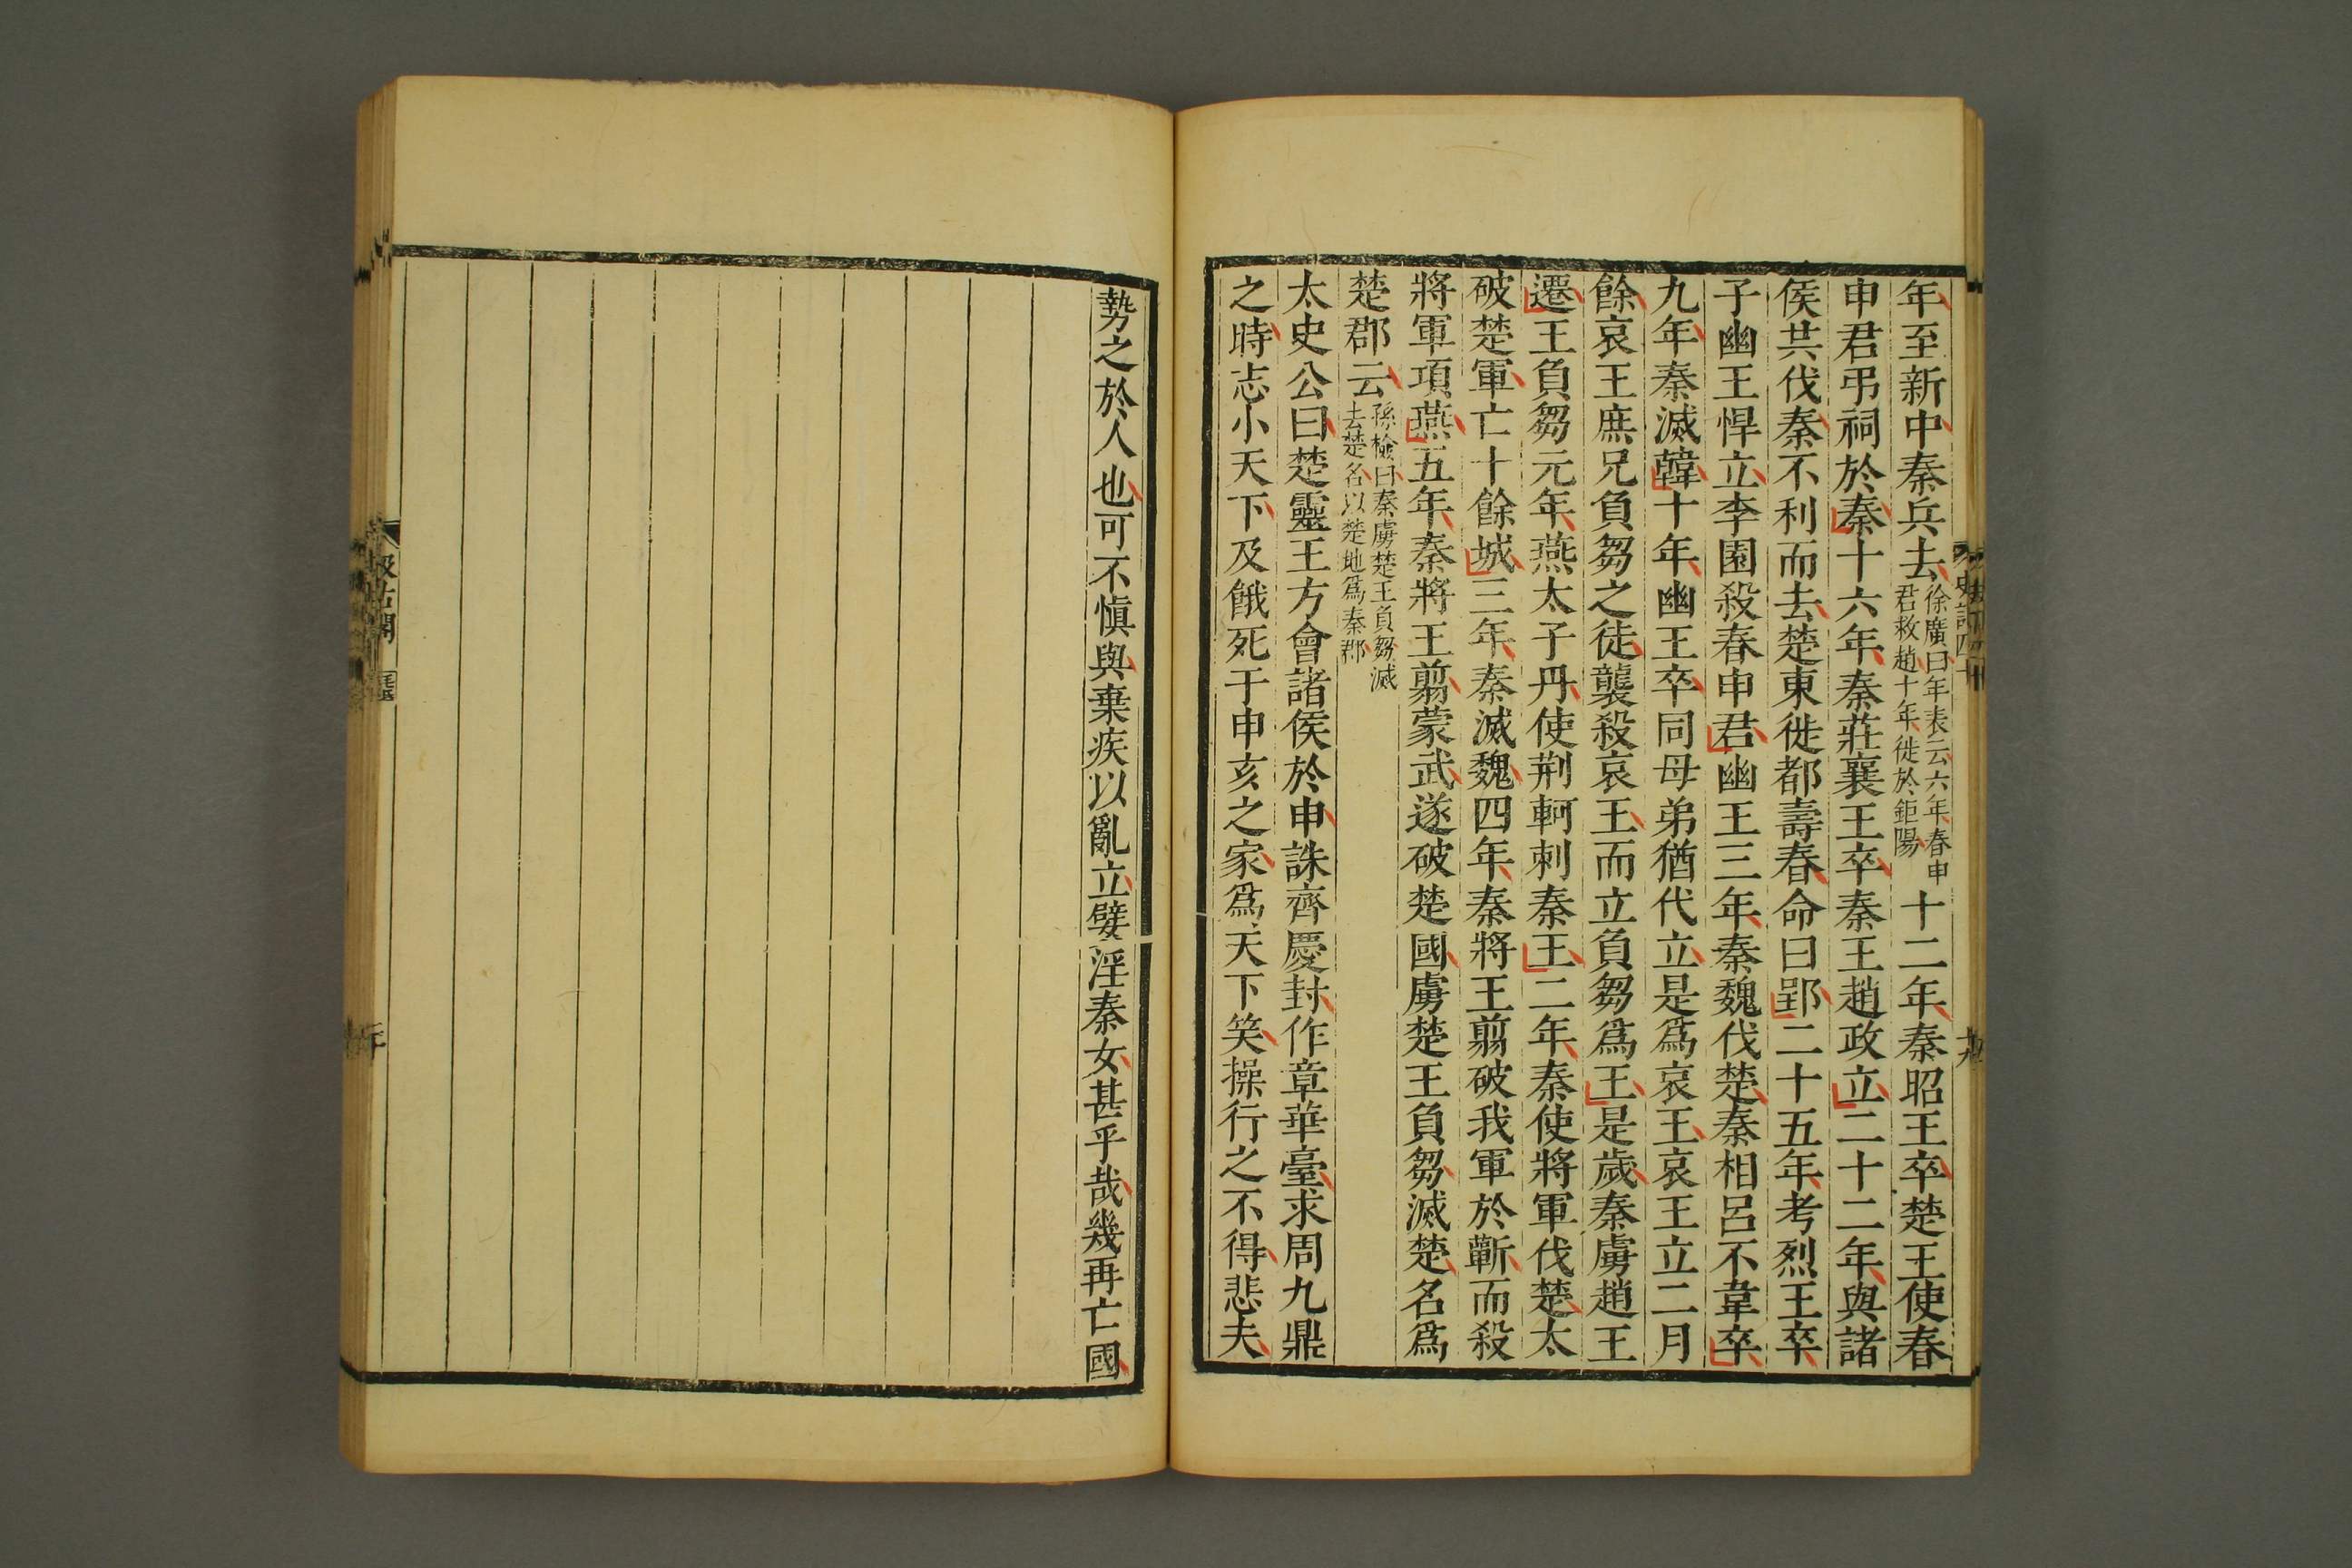 年至新中秦兵去徐廣曰年表云六年春申君救趙十年徙於鉅陽十二年秦昭王卒楚王使春
申君弔祠於秦十六年秦莊襄王卒秦王趙政立二十二年與諸
侯共伐秦不利而去楚東徙都壽春命曰郢二十五年考烈王卒
子幽王悍立李園殺春申君幽王三年秦魏伐楚秦相呂不韋卒
九年秦滅韓十年幽王卒同母弟猶代立是爲哀王哀王立二月
餘哀王庶兄負芻之徒襲殺哀王而立負芻爲王是歲秦虜趙王
遷王負芻元年燕太子丹使荆軻刺秦王二年秦使將軍伐楚太
破楚軍亡十餘城三年秦滅魏四年秦將王翦破我軍於蘄而殺
將軍項燕五年秦將王翦蒙武遂破楚國虜楚王負芻滅楚名爲
楚郡云孫檢曰秦虜楚王負芻滅去楚名以楚地爲秦郡
太史公曰楚靈王方會諸侯於申誅齊慶封作章華臺求周九鼎
之時志小天下及餓死于申亥之家爲天下笑操行之不得悲夫
勢之於人也可不愼與棄疾以亂立嬖淫秦女甚乎哉幾再亡國
史記四十
十九
汲古閣